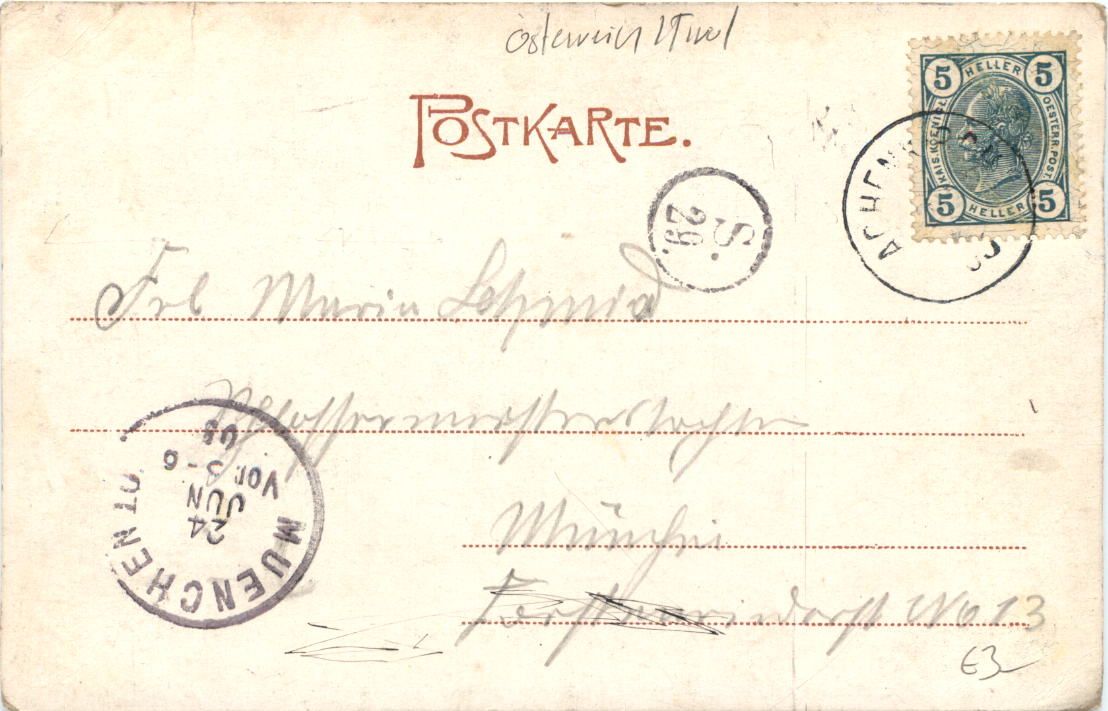 Österreich / Tirol
POSTKARTE.
5 HELLER 5
KAIS. KOENIGL. OESTERR. POST
5 HELLER 5
ACHENK
S.
29.
Frl Maria Schmid
Schlossermeisterstochter
München
No 13
MUENCHEN
24
JUN
Vor. 3-6
03
E3